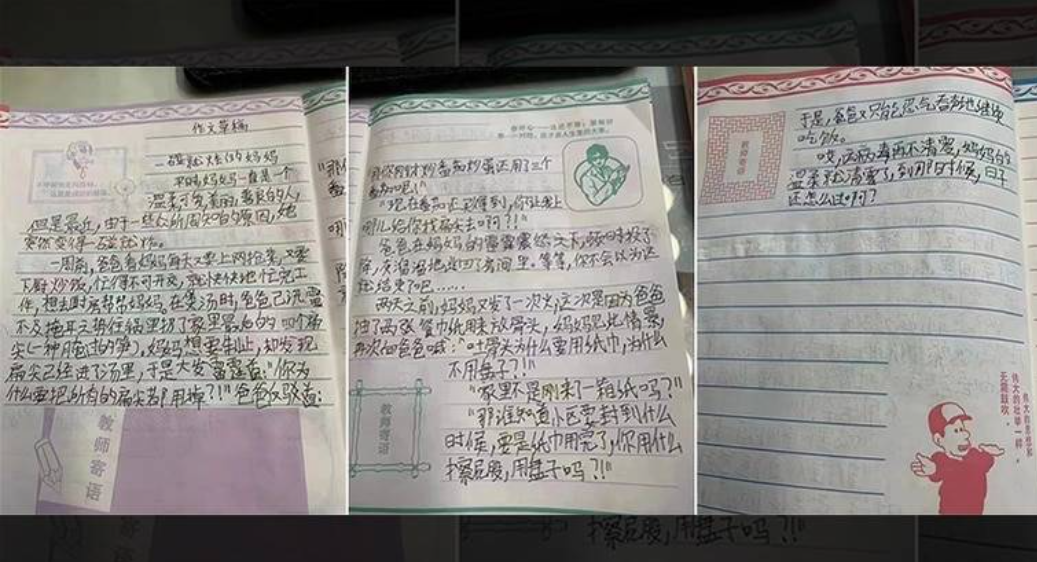 作文草稿
一碰就炸的妈妈
平时妈妈一直是个
温柔可爱美丽,善良的人,
但是最近,由于一些众所周知的原因,她
突然变得一碰就炸。
一周前,爸爸看妈妈每天又要上网抢菜,又要
下厨炒饭,忙得不可开交,就快快地忙完工
作,想去厨房帮帮妈妈。在煲汤时,爸爸已迅雷
不及掩耳之势往锅里扔了家里最后的四个扁
尖(一种腌过的笋),妈妈想要制止,却发现
扁尖已经进了汤里,于是大发雷霆道:"你为
什么要把所有的扁尖都用掉?!"爸爸反驳道:
教师寄语
"那你刚才炒番茄炒蛋还用了三个
番茄呢!"
"现在番茄还买得到,你让我上
哪儿给你找扁尖去啊?!"
爸爸在妈妈的雷霆震怒之下,
溜溜地逃回了房间里。等等,你不会以为这
就结束了吧……
两天之前,妈妈又发了一次火,这次是因为爸爸
抽了两张餐巾纸用来放骨头,妈妈见此情景,
再次向爸爸喊:"吐骨头为什么要用纸巾,为什么
不用盘子?!"
"家里不是刚来了一箱纸吗?"
"那谁知道小区要封到什么
时候,要是纸巾用完了,你用什么
擦屁股,用盘子吗?!"
教师寄语
于是,爸爸又只能忍气吞声地继续
吃饭。
哎,这病毒再不清零,妈妈的
温柔就清零了,到那时候,日子
还怎么过啊?
教师寄语
伟大的思想和
伟大的壮举一样,
无需鼓吹。
擦屁股,用盘子吗?!"